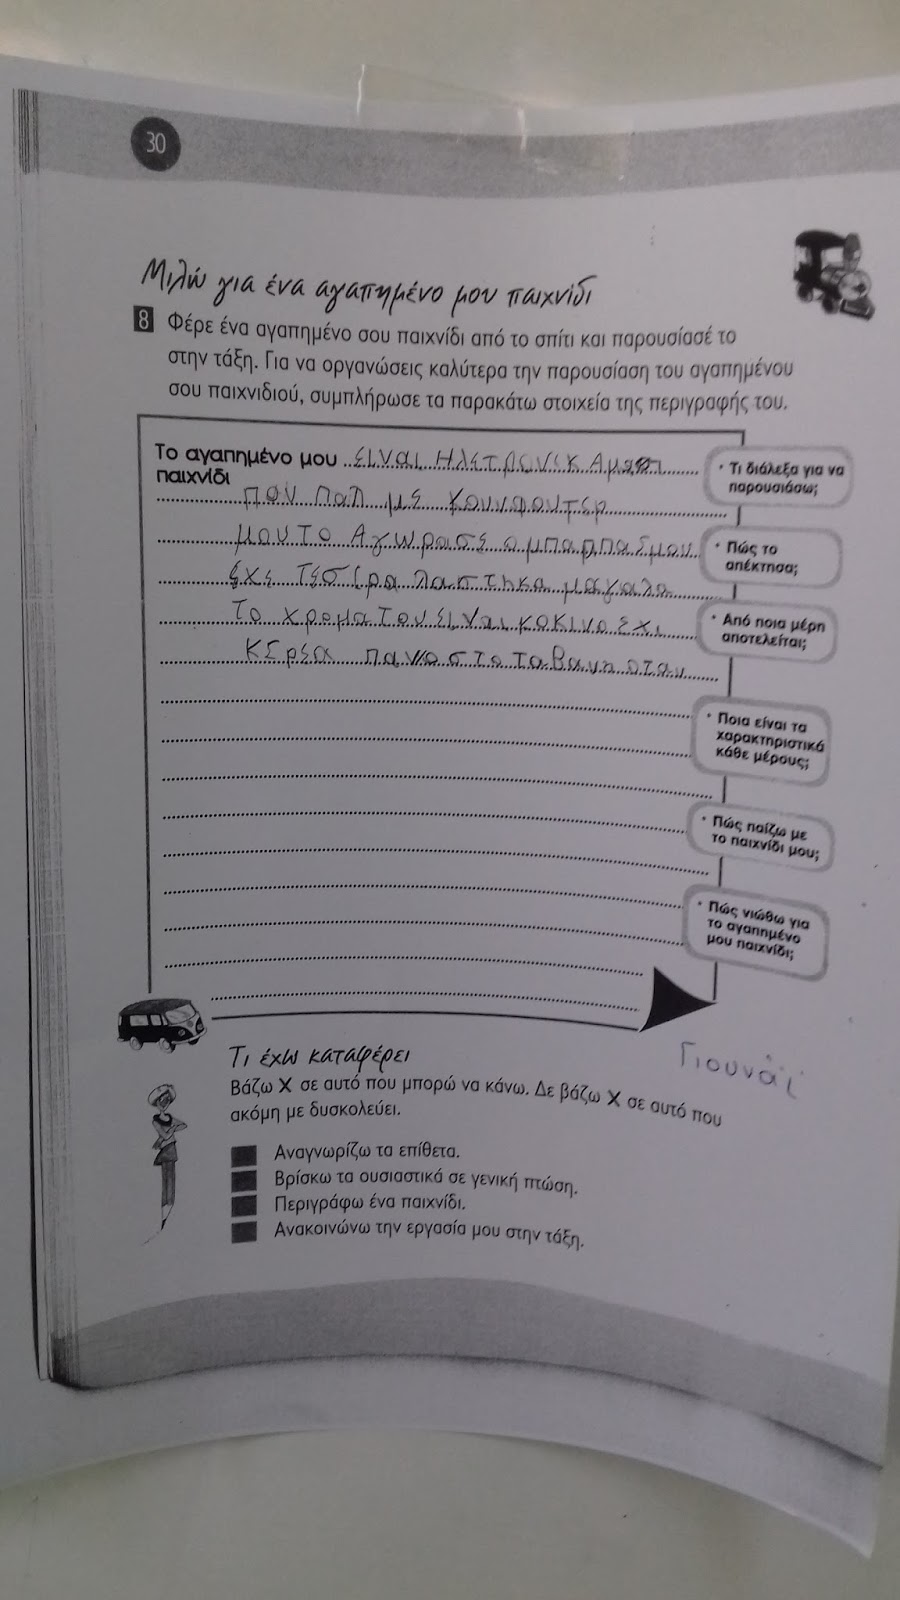 30
Μιλώ για ένα αγαπημένο μου παιχνίδι
8 Φέρε ένα αγαπημένο σου παιχνίδι από το σπίτι και παρουσίασέ το
στην τάξη. Για να οργανώσεις καλύτερα την παρουσίαση του αγαπημένου
σου παιχνιδιού, συμπλήρωσε τα παρακάτω στοιχεία της περιγραφής του.
Το αγαπημένο μου ειναι Ηλετρονικ
παιχνίδι
που παη με κουνφουτερ
μου το Αγωρασε ο μπαρπασμου
έχε τεσιρα λαστηκα μαγαλα
το χρομα του ειναι κοκινο εχι
πανο στο ταβανη οταν
• Τι διάλεξα για να
παρουσιάσω;
• Πώς το
απέκτησα;
• Από ποια μέρη
αποτελείται;
• Ποια είναι τα
χαρακτηριστικά
κάθε μέρους;
• Πώς παίζω με
το παιχνίδι μου;
• Πώς νιώθω για
το αγαπημένο
μου παιχνίδι;
Γιουνάι
Τι έχω καταφέρει
Βάζω Χ σε αυτό που μπορώ να κάνω. Δε βάζω Χ σε αυτό που
ακόμη με δυσκολεύει.
Αναγνωρίζω τα επίθετα.
Βρίσκω τα ουσιαστικά σε γενική πτώση.
Περιγράφω ένα παιχνίδι.
Ανακοινώνω την εργασία μου στην τάξη.